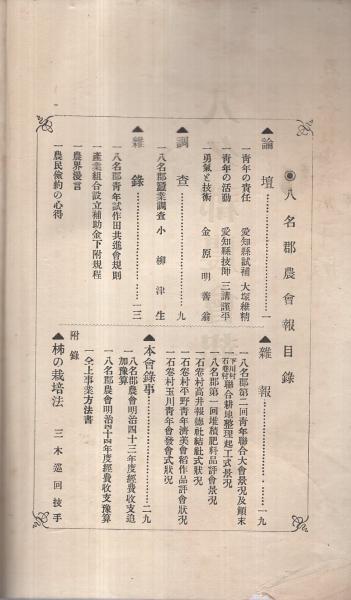 ◉八名郡農會報目錄
▲論壇…………一
一青年の責任 愛知縣試補 大塚維精
一青年の活動 愛知縣技師 三溝謹平
一勇氣と技術 金原明善翁
▲調査…………九
一八名郡蠶業調査 小柳津生
▲雜錄…………一三
一八名郡青年試作田共進會規則
一產業組合設立補助金下附規程
一農界漫言
一農民儉約の心得
▲雜報…………一九
一八名郡第二回青年聯合大會景況及顛末
一下川村石卷村聯合耕地整理起工式景況
一八名郡第一回堆積肥料品評會景況
一石卷村高井報德社結社式狀況
一石卷村平野青年濟美會稻作品評會狀況
一石卷村玉川青年會發會式狀況
▲本會錄事…………二九
一八名郡農會明治四十三年度經費收支追加豫算
一八名郡農會明治四十四年度經費收支豫算
一仝上事業方法書
附錄
▲柿の栽培法 三木巡回技手